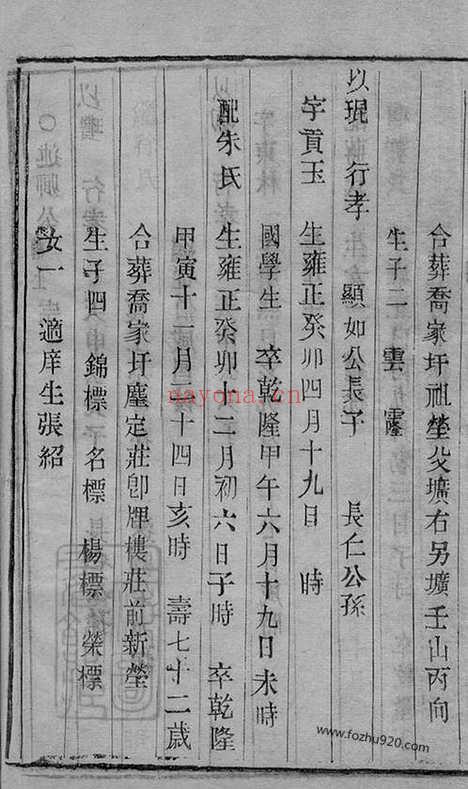 合葬喬家圩祖塋父壙右另壙壬山丙向
生子二 雲 霳
以琨 行孝 顯如公長子 長仁公孫
字貢玉 生雍正癸卯四月十九日 時
國學生 卒乾隆甲午六月十九日未時
配朱氏 生雍正癸卯十二月初六日子時 卒乾隆
甲寅十一月 十四日亥時 壽七十二歲
合葬喬家圩塵定莊卽牌樓莊前新塋
生子四 錦標 名標 楊標 榮標
女一 適庠生張紹
nayona.cn
www.fozhu920.com